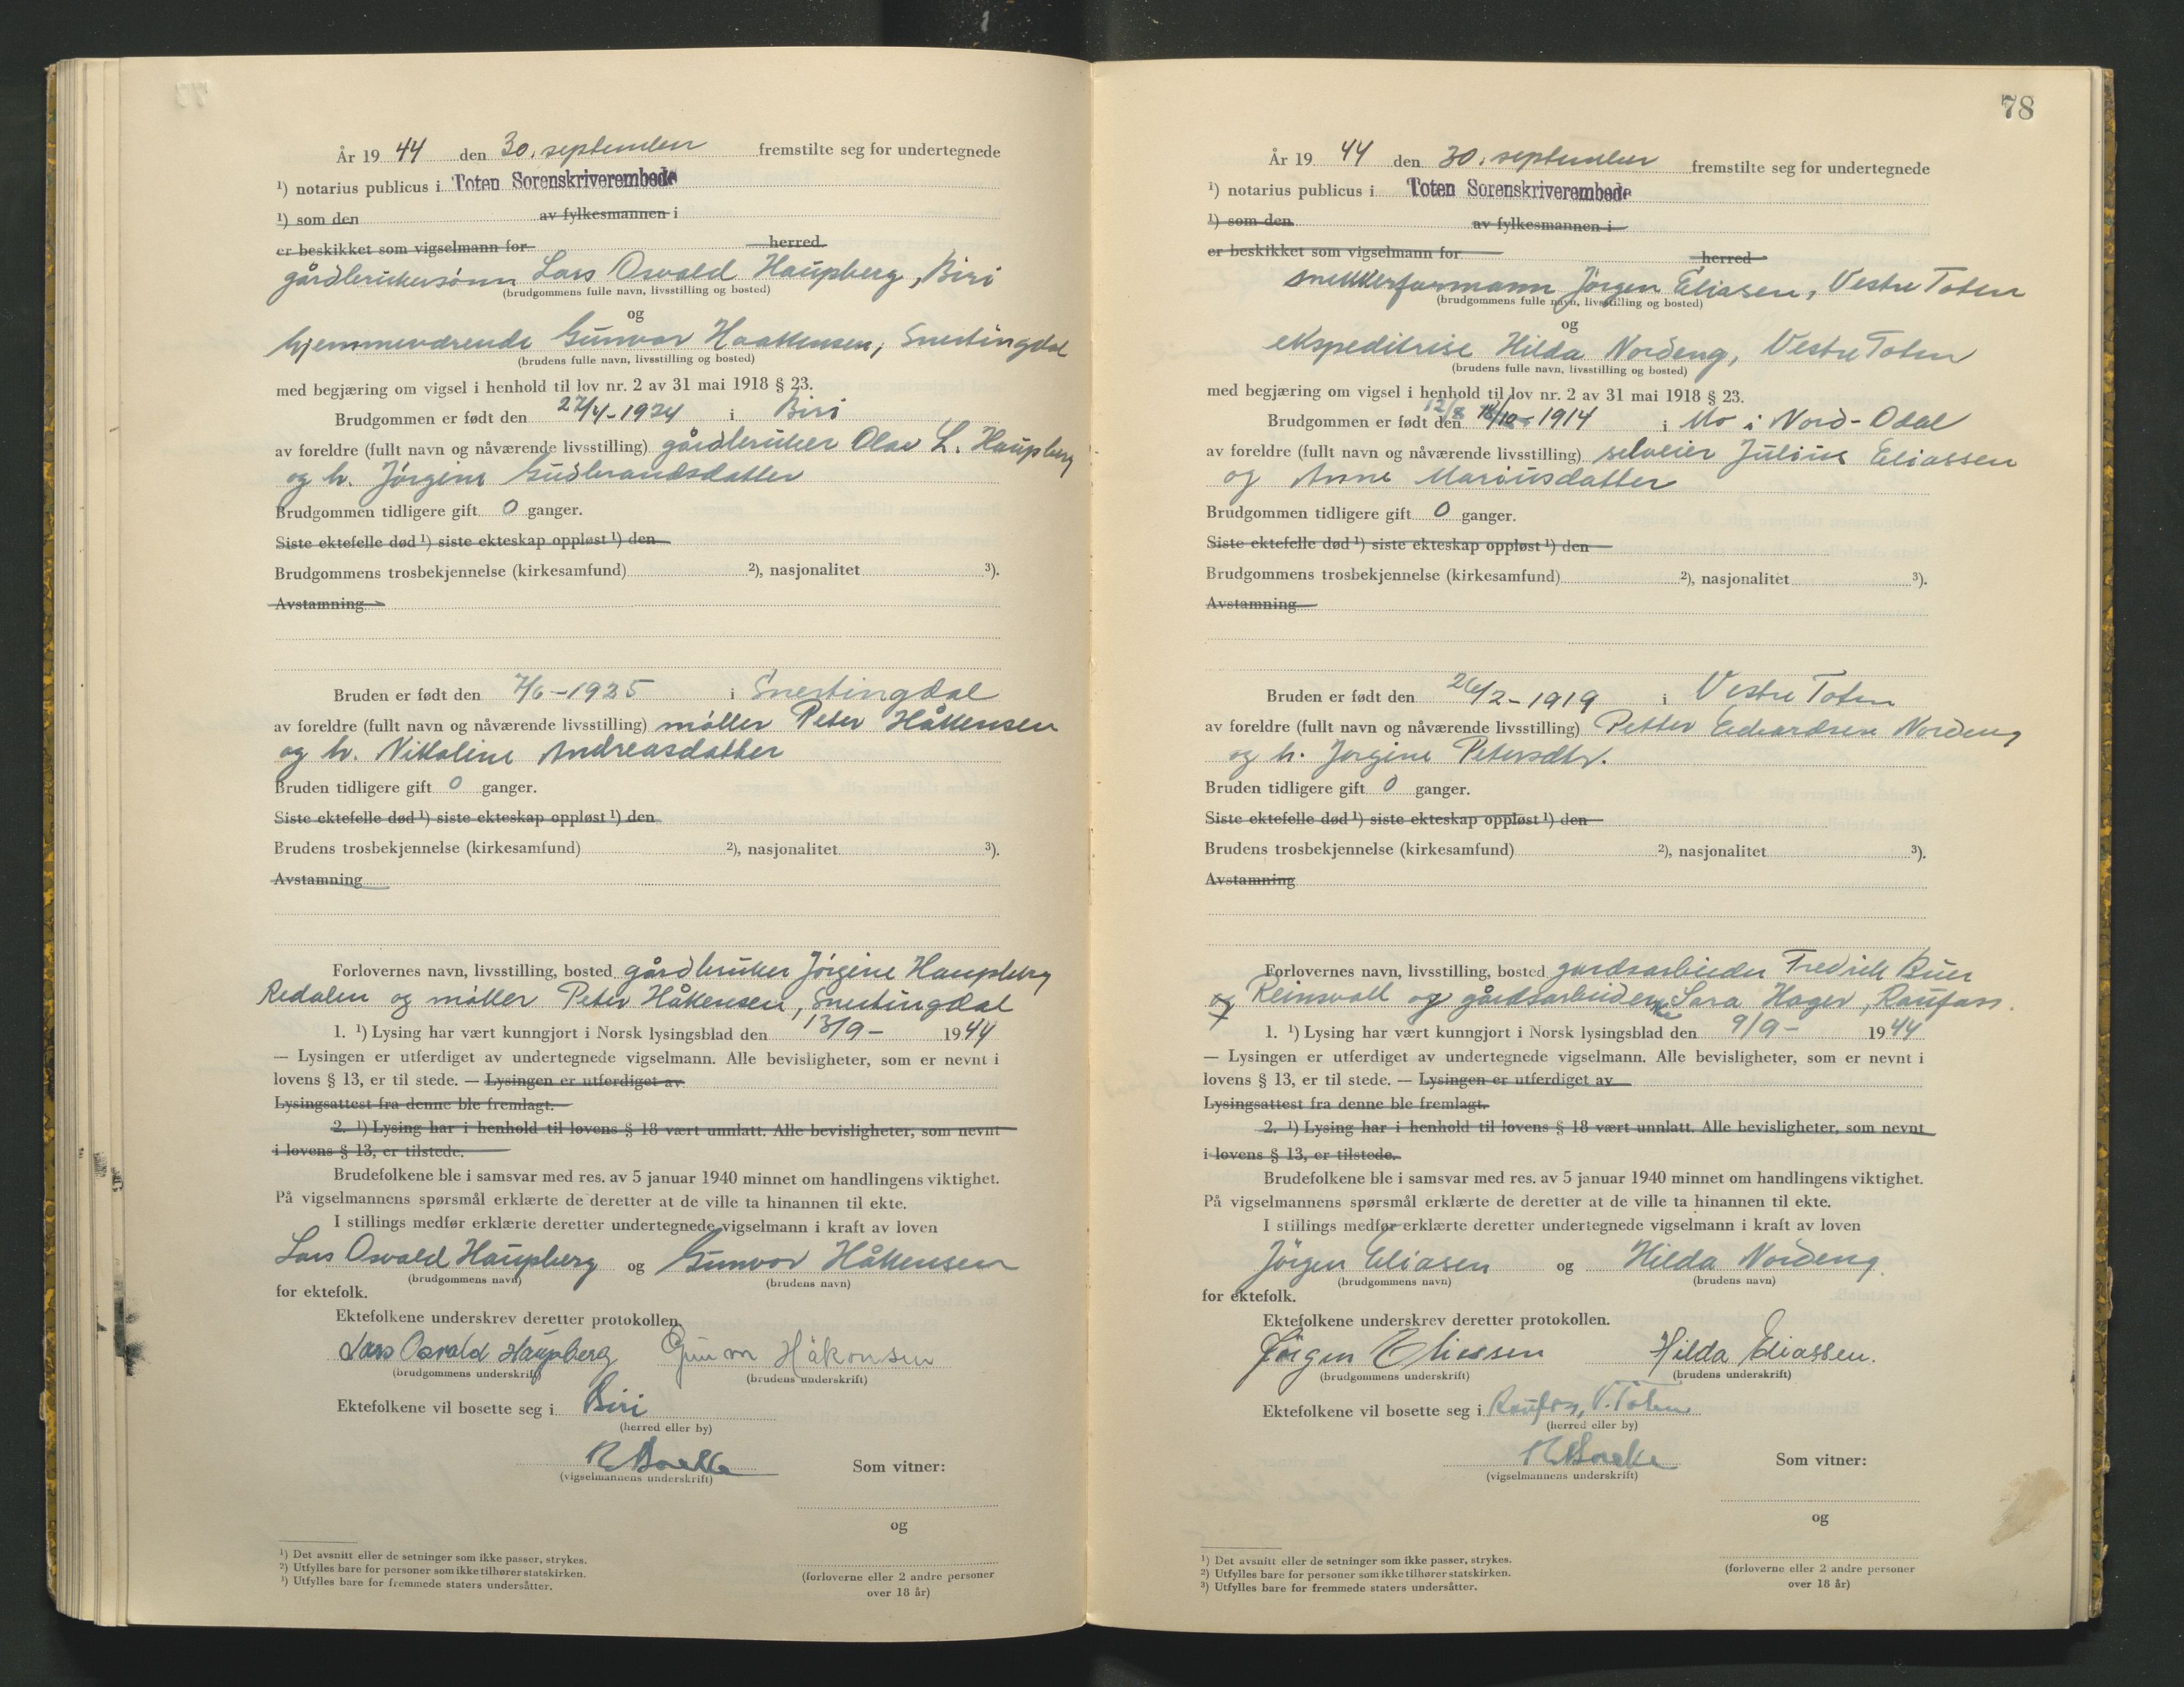 År 19 44 den 30. september fremstilte seg for undertegnede
¹) notarius publicus i Toten Sorenskriverembede
¹) som den av fylkesmannen i
er beskikket som vigselmann for herred.
gårdbrukersønn Lars Osvald Haupberg, Biri
(brudgommens fulle navn, livsstilling og bosted)
og
hjemmeværende Gunvor Haakensen, Snertingdal
(brudens fulle navn, livsstilling og bosted)
med begjæring om vigsel i henhold til lov nr. 2 av 31 mai 1918 § 23.
Brudgommen er født den 27/4-1924 i Biri
av foreldre (fullt navn og nåværende livsstilling) gårdbruker Olav L. Haupberg
og h. Jørgine Gudbrandsdatter
Brudgommen tidligere gift 0 ganger.
Siste ektefelle død ¹) siste ekteskap oppløst ¹) den
Brudgommens trosbekjennelse (kirkesamfund) ²), nasjonalitet ³).
Avstamning
Bruden er født den 7/6-1925 i Snertingdal
av foreldre (fullt navn og nåværende livsstilling) møller Peter Håkensen
og h. Nikoline Andreasdatter
Bruden tidligere gift 0 ganger.
Siste ektefelle død ¹) siste ekteskap oppløst ¹) den
Brudens trosbekjennelse (kirkesamfund) ²), nasjonalitet ³).
Avstamning
Forlovernes navn, livsstilling, bosted gårdbruker Jørgine Haupberg
Redalen og møller Peter Håkensen, Snertingdal
1. ¹) Lysing har vært kunngjort i Norsk lysingsblad den 13/9- 1944
— Lysingen er utferdiget av undertegnede vigselmann. Alle bevisligheter, som er nevnt i
lovens § 13, er til stede. — Lysingen er utferdiget av
Lysingsattest fra denne ble fremlagt.
2. ¹) Lysing har i henhold til lovens § 18 vært unnlatt. Alle bevisligheter, som nevnt
i lovens § 13, er tilstede.
Brudefolkene ble i samsvar med res. av 5 januar 1940 minnet om handlingens viktighet.
På vigselmannens spørsmål erklærte de deretter at de ville ta hinannen til ekte.
I stillings medfør erklærte deretter undertegnede vigselmann i kraft av loven
Lars Osvald Haupberg og Gunvor Håkensen
(brudgommens navn) (brudens navn)
for ektefolk.
Ektefolkene underskrev deretter protokollen.
Lars Osvald Haupberg Gunvor Håkonsen
(brudgommens underskrift) (brudens underskrift)
Ektefolkene vil bosette seg i Biri
(herred eller by)
(vigselmannens underskrift) Som vitner:
og
(forloverne eller 2 andre personer
over 18 år)
¹) Det avsnitt eller de setninger som ikke passer, strykes.
²) Utfylles bare for personer som ikke tilhører statskirken.
³) Utfylles bare for fremmede staters undersåtter.
78
År 19 44 den 30. september fremstilte seg for undertegnede
¹) notarius publicus i Toten Sorenskriverembede
¹) som den av fylkesmannen i
er beskikket som vigselmann for herred
snekkerformann Jørgen Eliasen, Vestre Toten
(brudgommens fulle navn, livsstilling og bosted)
og
ekspeditrise Hilda Nordeng, Vestre Toten
(brudens fulle navn, livsstilling og bosted)
med begjæring om vigsel i henhold til lov nr. 2 av 31 mai 1918 § 23.
Brudgommen er født den 12/8 18/10-1914 i Mo i Nord-Odal
av foreldre (fullt navn og nåværende livsstilling) selveier Julius Eliassen
og Anne Mariusdatter
Brudgommen tidligere gift 0 ganger.
Siste ektefelle død ¹) siste ekteskap oppløst ¹) den
Brudgommens trosbekjennelse (kirkesamfund) ²), nasjonalitet ³).
Avstamning
Bruden er født den 26/2-1919 i Vestre Toten
av foreldre (fullt navn og nåværende livsstilling) Petter Edvardsen Nordeng
og h. Jørgine Petersdtr.
Bruden tidligere gift 0 ganger.
Siste ektefelle død ¹) siste ekteskap oppløst ¹) den
Brudens trosbekjennelse (kirkesamfund) ²), nasjonalitet ³).
Avstamning
Forlovernes navn, livsstilling, bosted gardsarbeider Fredrik Buer
og Reinsvoll og gårdsarbeiderske Sara Hager, Raufoss.
1. ¹) Lysing har vært kunngjort i Norsk lysingsblad den 9/9- 1944
— Lysingen er utferdiget av undertegnede vigselmann. Alle bevisligheter, som er nevnt i
lovens § 13, er til stede. — Lysingen er utferdiget av
Lysingsattest fra denne ble fremlagt.
2. ¹) Lysing har i henhold til lovens § 18 vært unnlatt. Alle bevisligheter, som nevnt
i lovens § 13, er tilstede.
Brudefolkene ble i samsvar med res. av 5 januar 1940 minnet om handlingens viktighet.
På vigselmannens spørsmål erklærte de deretter at de ville ta hinannen til ekte.
I stillings medfør erklærte deretter undertegnede vigselmann i kraft av loven
Jørgen Eliasen og Hilda Nordeng.
(brudgommens navn) (brudens navn)
for ektefolk.
Ektefolkene underskrev deretter protokollen.
Jörgen Eliassen Hilda Eliassen.
(brudgommens underskrift) (brudens underskrift)
Ektefolkene vil bosette seg i Raufoss, V. Toten
(herred eller by)
(vigselmannens underskrift) Som vitner:
og
(forloverne eller 2 andre personer
over 18 år)
¹) Det avsnitt eller de setninger som ikke passer, strykes.
²) Utfylles bare for personer som ikke tilhører statskirken.
³) Utfylles bare for fremmede staters undersåtter.